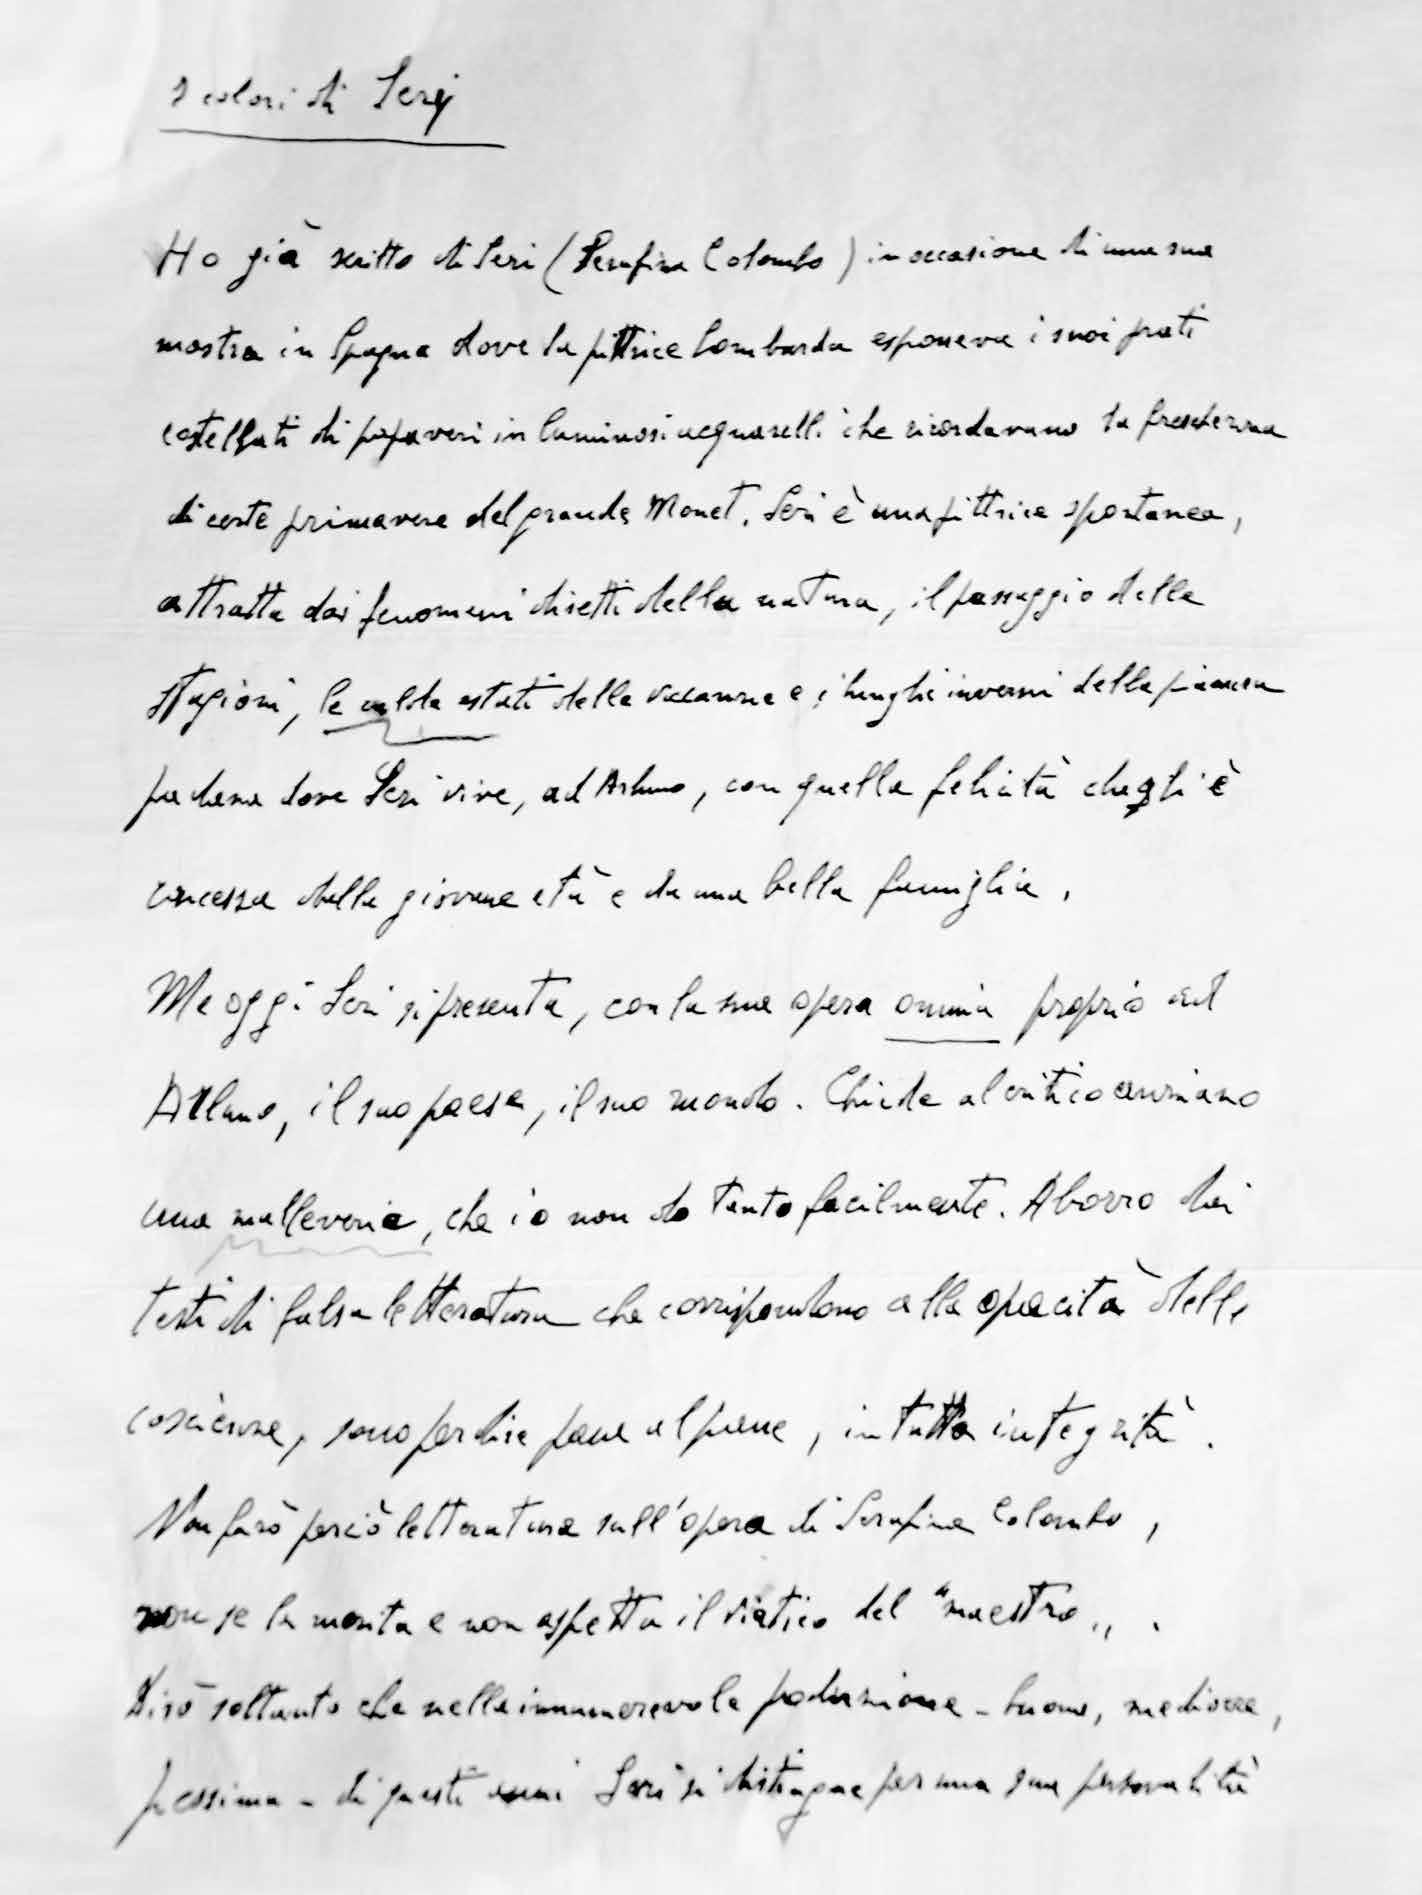 I colori di Serj
Ho già scritto di Seri (Serafina Colombo) in occasione di una sua
mostra in Spagna dove la pittrice lombarda esponeva i suoi prati
costellati di papaveri in luminosi acquarelli che ricordavano la freschezza
di certe primavere del grande Monet. Seri è una pittrice spontanea,
attratta dai fenomeni diretti della natura, il passaggio delle
stagioni, le calde estati delle vacanze e i lunghi inverni della pianura
padana dove Seri vive, ad Arluno, con quella felicità che gli è
concessa dalla giovane età e da una bella famiglia.
Ma oggi Seri si presenta, con la sua opera omnia proprio ad
Arluno, il suo paese, il suo mondo. Chiede al critico anziano
una malleveria, che io non do tanto facilmente. Aborro dai
testi di falsa letteratura che corrispondono alla opacità delle
coscienze, sono per dire pane al pane, in tutta integrità.
Non farò perciò letteratura sull'opera di Serafina Colombo,
non se la merita e non aspetta il viatico del "maestro".
Dirò soltanto che nella innumerevole produzione - buona, mediocre,
pessima - di questi anni Seri si distingue per una sua personalità